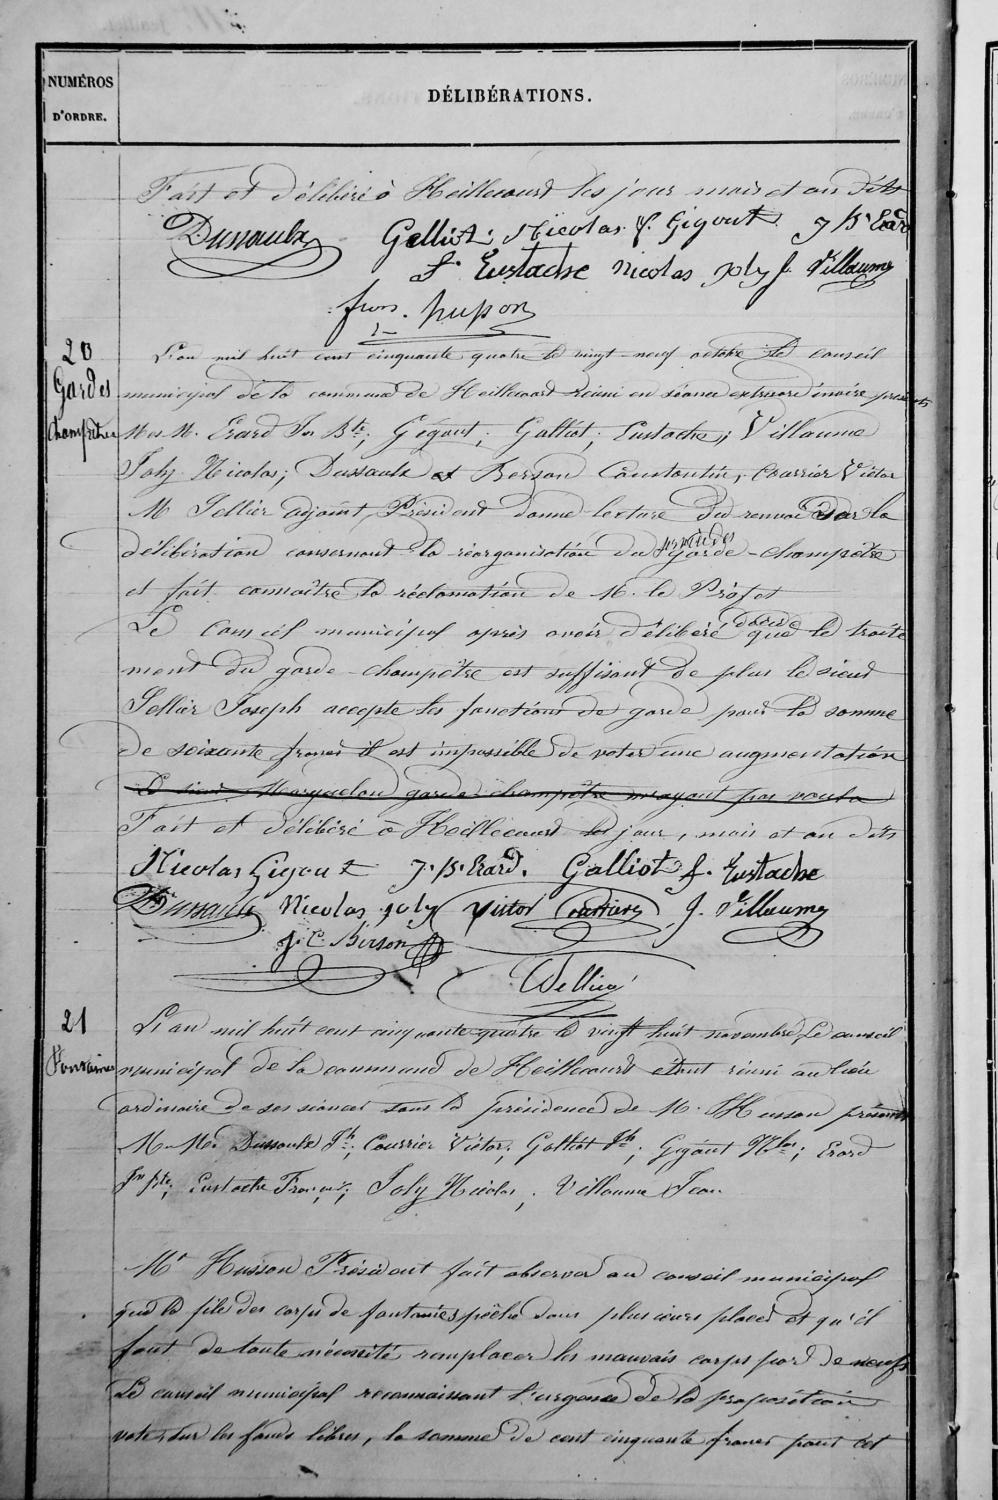 NUMÉROS
D'ORDRE.
DÉLIBÉRATIONS.
Fait et délibéré à Heillecourt les jour mois et an dits
Dussaulx Galliot Nicolas f. Gigout J B Erard
f. Eustache Nicolas joly J. Villaume
fran. hupon
20
Gardes
Champêtre
L'an mil huit cent cinquante quatre le vingt-neuf octobre le conseil
municipal de la commune de Heillecourt réuni en séance extraordinaire présents
M es M. Erard Jn Bte; Gigout; Galliot; Eustache; Villaume
Joly Nicolas; Dussaulx et Berson Constantin; Courrier Victor
M Sellier adjoint Président donne lecture du renvoi de la
délibération consernant la réorganisation du garde-champêtre
et fait connaître la réclamation de M. le Préfet
Le Conseil municipal après avoir délibéré décide que le traite
ment du garde-champêtre est suffisant de plus le sieur
Sellier Joseph accepte les fonctions de garde pour la somme
de soixante francs il est impossible de voter une augmentation
Le sieur garde champêtre n'ayant pas voulu
Fait et délibéré à Heillecourt les jour, mois et an dits
Nicolas Gigout J. B. Erard. Galliot f. Eustache
Dussaulx Nicolas joly Victor Courrier J. Villaume
J. C. Berson
Sellier
21
Fontaines
L'an mil huit cent cinquante quatre le vingt huit novembre, Le conseil
municipal de la commune de Heillecourt étant réuni au lieu
ordinaire de ses séances sous la présidence de M. Husson présents
M. Mes Dussaulx Jh; Courrier Victor; Galliot Jh; Gigout Nlas; Erard
Jn Bte; Eustache François; Joly Nicolas; Villaume Jean
Mr Husson Président fait observer au conseil municipal
que la file des corps de fontaines pèche dans plusieurs places et qu'il
faut de toute nécessité remplacer les mauvais corps par de neufs
Le conseil municipal reconnaissant l'urgence de la proposition
vote sur les fonds libres, la somme de cent cinquante francs pour cet